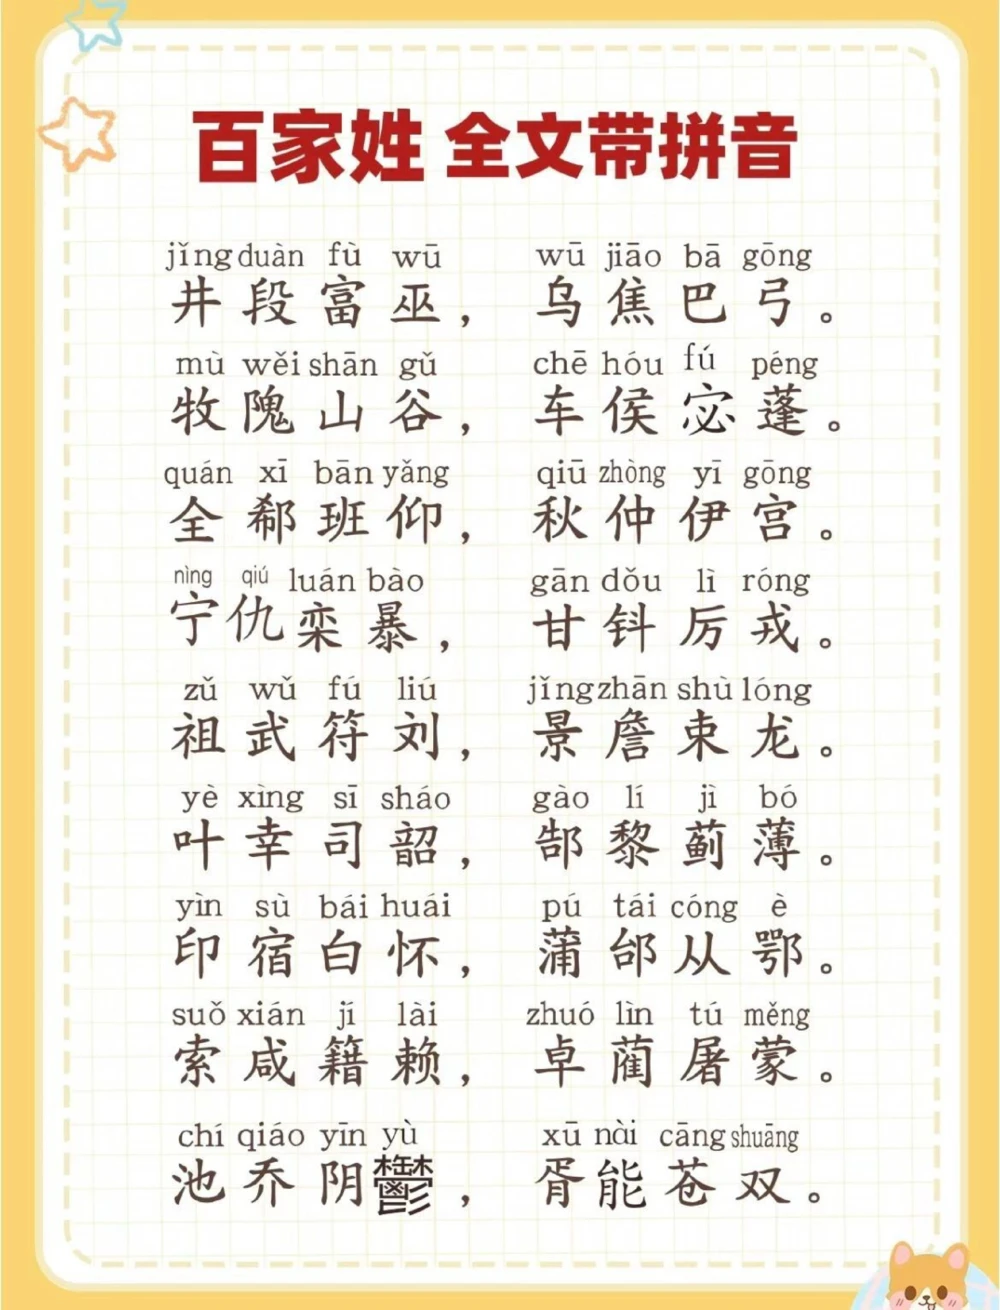 百家姓 全文带拼音
jǐng duàn fù wū wū jiāo bā gōng
井段富巫，乌焦巴弓。
mù wěi shān gǔ chē hóu fú péng
牧隗山谷，车侯宓蓬。
quán xī bān yǎng qiū zhòng yī gōng
全郗班仰，秋仲伊宫。
nìng qiú luán bào gān dǒu lì róng
宁仇栾暴，甘钭厉戎。
zǔ wǔ fú liú jǐng zhān shù lóng
祖武符刘，景詹束龙。
yè xìng sī sháo gào lí jì bó
叶幸司韶，郜黎蓟薄。
yìn sù bái huái pú tái cóng è
印宿白怀，蒲邰从鄂。
suǒ xián jí lài zhuó lìn tú měng
索咸籍赖，卓蔺屠蒙。
chí qiáo yīn yù xū nài cāng shuāng
池乔阴鬱，胥能苍双。